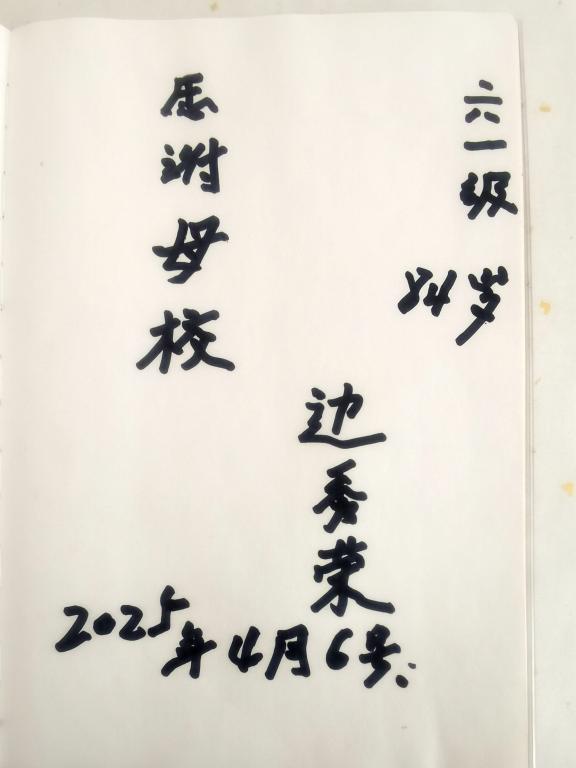 六一级
84岁
边秀荣
感谢母校
2025年4月6号